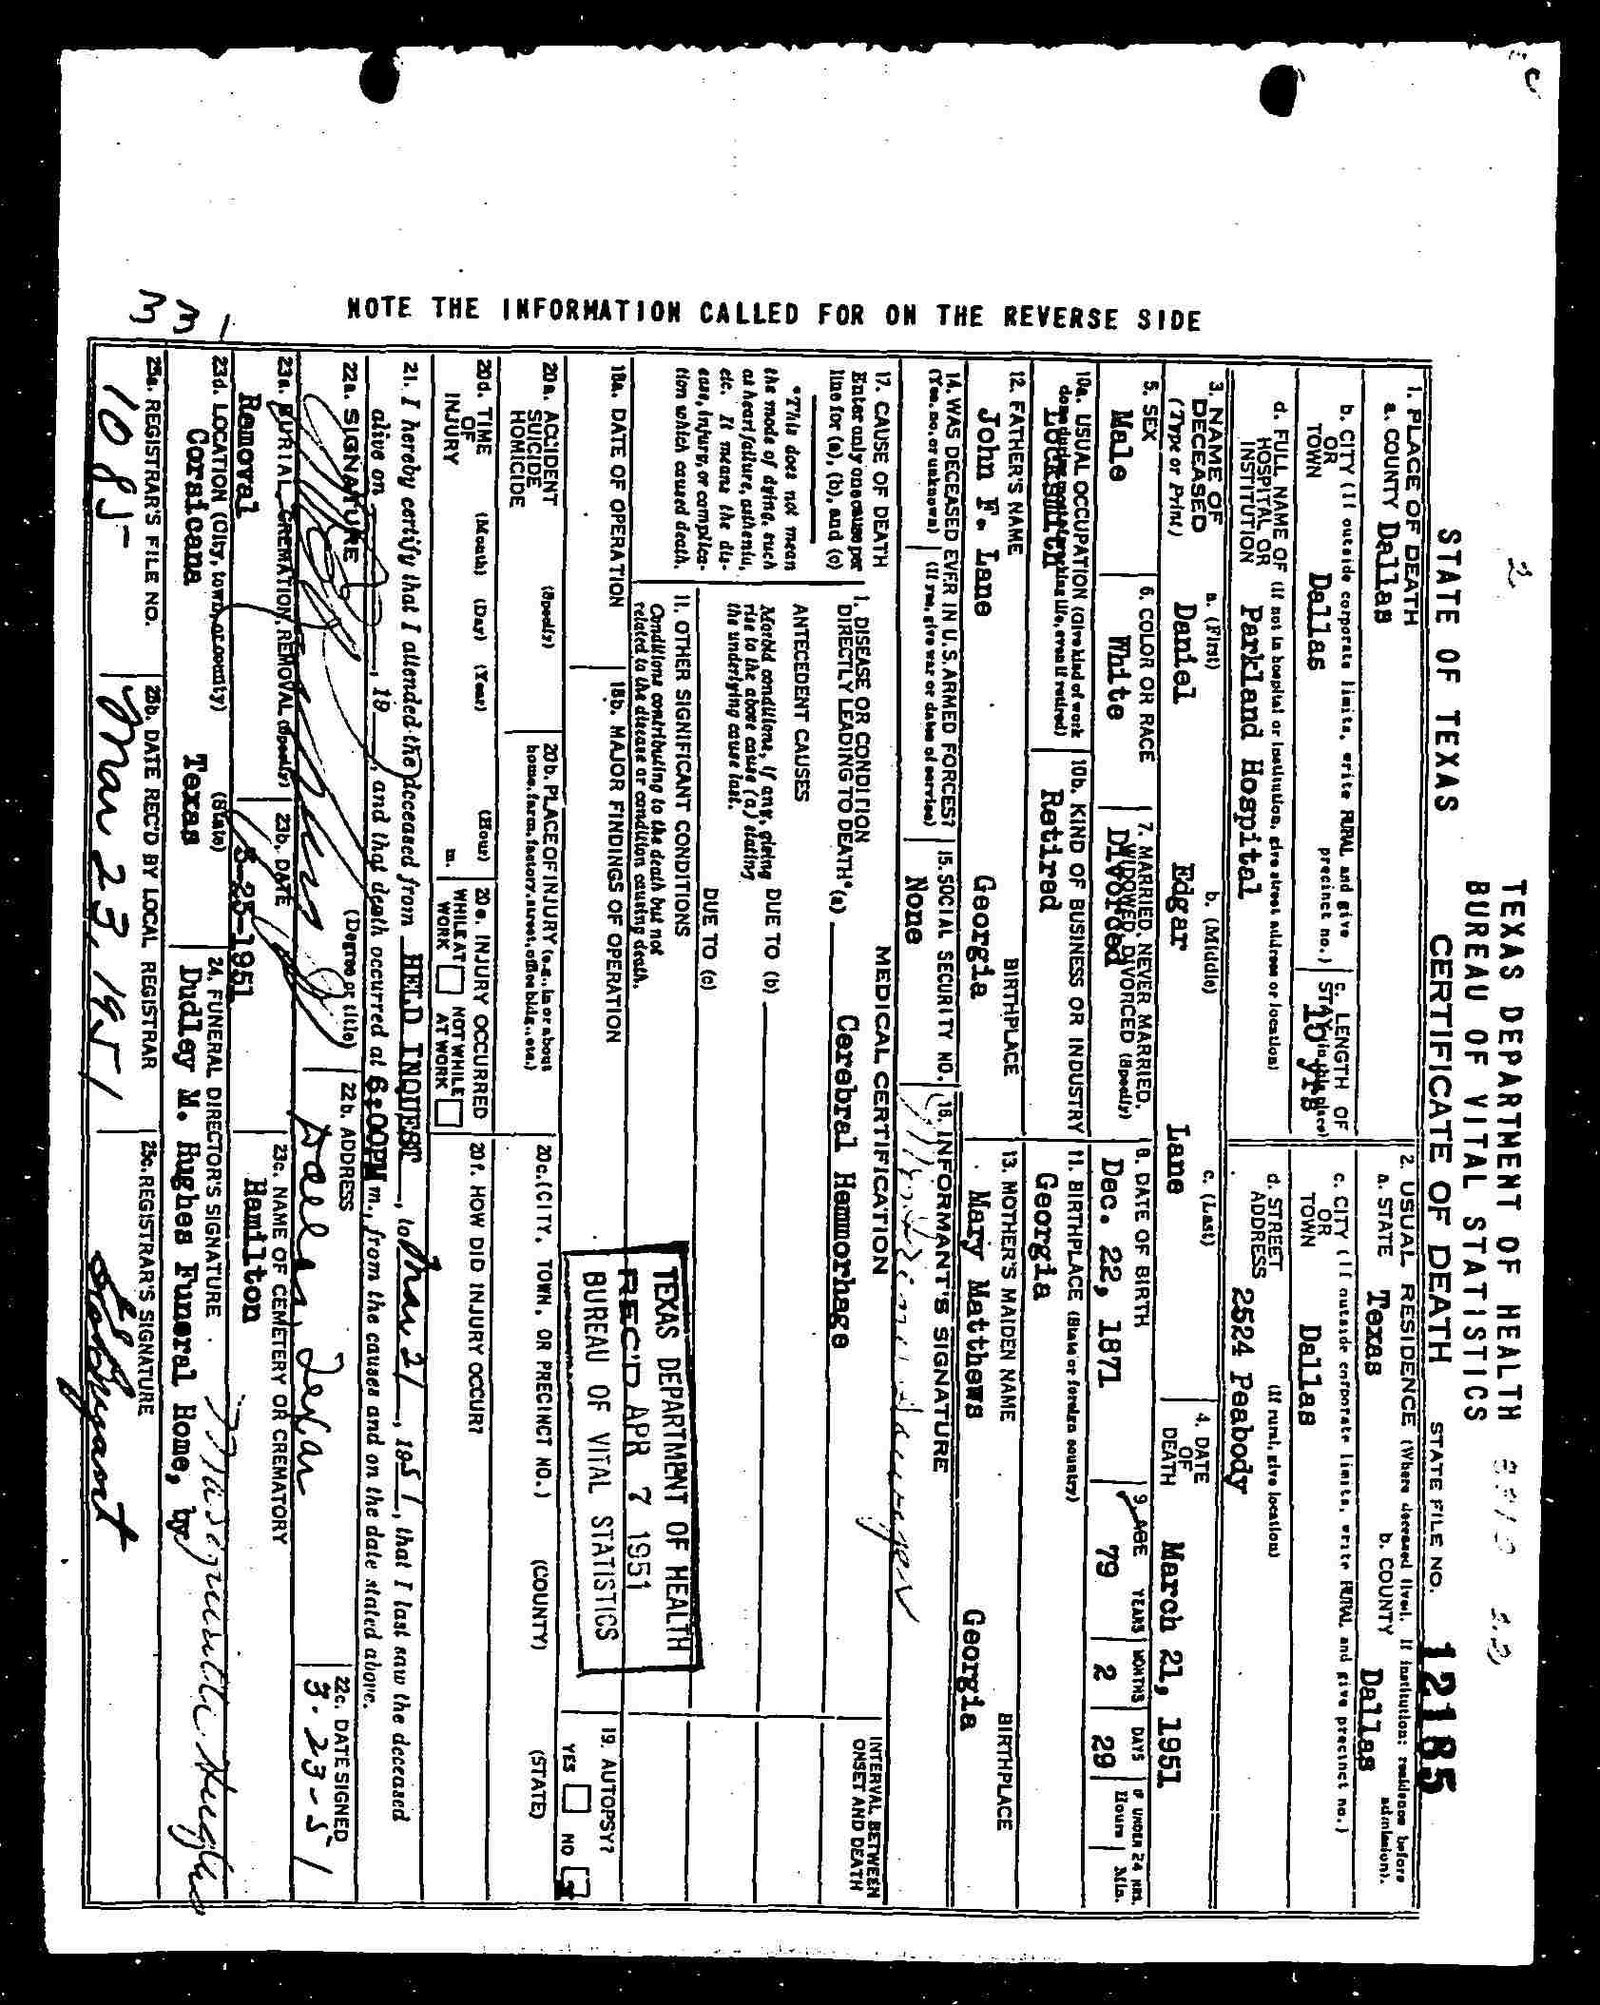 TEXAS DEPARTMENT OF HEALTH
BUREAU OF VITAL STATISTICS
STATE OF TEXAS
CERTIFICATE OF DEATH
STATE FILE NO. 12185
1. PLACE OF DEATH
a. COUNTY Dallas
2. USUAL RESIDENCE (Where deceased lived. If institution: residence before admission).
a. STATE Texas
b. COUNTY Dallas
b. CITY (If outside corporate limits, write RURAL and give precinct no.)
OR
TOWN Dallas
c. LENGTH OF STAY (in this place)
15 yrs
c. CITY (If outside corporate limits, write RURAL and give precinct no.)
OR
TOWN Dallas
d. FULL NAME OF (If not in hospital or institution, give street address or location)
HOSPITAL OR
INSTITUTION Parkland Hospital
d. STREET (If rural, give location)
ADDRESS 2524 Peabody
3. NAME OF DECEASED
(Type or Print)
a. (First) Daniel
b. (Middle) Edgar
c. (Last) Lane
4. DATE OF DEATH March 21, 1951
5. SEX
Male
6. COLOR OR RACE
White
7. MARRIED, NEVER MARRIED, WIDOWED, DIVORCED (Specify)
Divorced
8. DATE OF BIRTH
Dec. 22, 1871
9. AGE YEARS MONTHS DAYS IF UNDER 24 HRS. Hours Min.
79 2 29
10a. USUAL OCCUPATION (Give kind of work done during most of working life, even if retired)
Locksmith
10b. KIND OF BUSINESS OR INDUSTRY
Retired
11. BIRTHPLACE (State or foreign country)
Georgia
12. FATHER'S NAME BIRTHPLACE
John F. Lane Georgia
13. MOTHER'S MAIDEN NAME BIRTHPLACE
Mary Matthews Georgia
14. WAS DECEASED EVER IN U.S. ARMED FORCES?
(Yes, no, or unknown) (If yes, give war or dates of service)
15. SOCIAL SECURITY NO.
None
16. INFORMANT'S SIGNATURE
17. CAUSE OF DEATH
Enter only one cause per line for (a), (b), and (c)
*This does not mean the mode of dying, such as heart failure, asthenia, etc. It means the disease, injury, or complication which caused death.
MEDICAL CERTIFICATION
INTERVAL BETWEEN ONSET AND DEATH
I. DISEASE OR CONDITION
DIRECTLY LEADING TO DEATH* (a) Cerebral Hemmorhage
ANTECEDENT CAUSES
Morbid conditions, if any, giving rise to the above cause (a) stating the underlying cause last.
DUE TO (b)
DUE TO (c)
II. OTHER SIGNIFICANT CONDITIONS
Conditions contributing to the death but not related to the disease or condition causing death.
18a. DATE OF OPERATION
18b. MAJOR FINDINGS OF OPERATION
19. AUTOPSY?
YES NO
TEXAS DEPARTMENT OF HEALTH
REC'D APR 7 1951
BUREAU OF VITAL STATISTICS
20a. ACCIDENT (Specify)
SUICIDE
HOMICIDE
20b. PLACE OF INJURY (e.g., in or about home, farm, factory, street, office bldg., etc.)
20c. (CITY, TOWN, OR PRECINCT NO.) (COUNTY) (STATE)
20d. TIME (Month) (Day) (Year) (Hour)
OF
INJURY m.
20e. INJURY OCCURRED
WHILE AT WORK NOT WHILE AT WORK
20f. HOW DID INJURY OCCUR?
21. I hereby certify that I attended the deceased from HELD INQUEST, to Mar 21, 1951, that I last saw the deceased
alive on , 19 , and that death occurred at 6:00PM m., from the causes and on the date stated above.
22a. SIGNATURE (Degree or title)
22b. ADDRESS
Dallas, Texas
22c. DATE SIGNED
3-23-51
23a. BURIAL, CREMATION, REMOVAL (Specify)
Removal
23b. DATE
3-23-1951
23c. NAME OF CEMETERY OR CREMATORY
Hamilton
23d. LOCATION (City, town, or county) (State)
Corsicana Texas
24. FUNERAL DIRECTOR'S SIGNATURE
Dudley M. Hughes Funeral Home, by Marguerite Hughes
25a. REGISTRAR'S FILE NO.
1085
25b. DATE REC'D BY LOCAL REGISTRAR
Mar 23, 1951
25c. REGISTRAR'S SIGNATURE
NOTE THE INFORMATION CALLED FOR ON THE REVERSE SIDE